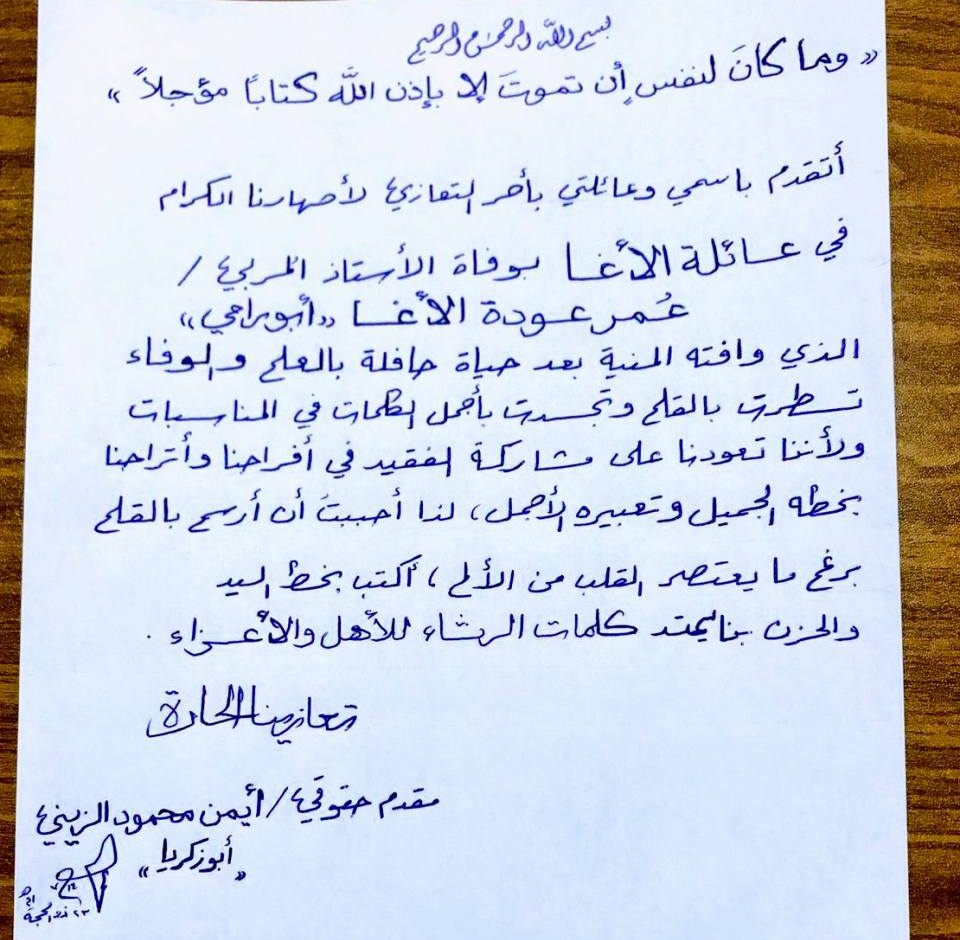 بسم الله الرحمن الرحيم
« وما كانَ لنفسٍ أن تموتَ إلا بإذن اللَّه كتابًا مؤجلاً »
أتقدم باسمي وعائلتي بأحر التعازي لأصهارنا الكرام
في عائلة الأغا بوفاة الأستاذ المربي /
عُمر عودة الأغا «أبو راجي»
الذي وافته المنية بعد حياة حافلة بالعلم والوفاء
تسطرت بالقلم وتجسدت بأجمل الكلمات في المناسبات
ولأننا تعودنا على مشاركة الفقيد في أفراحنا وأتراحنا
بخطه الجميل وتعبيره الأجمل، لذا أحببتَ أن أرسم بالقلم
برغم ما يعتصر القلب من الألم، أكتب بخط اليد
والحزن بنا يمتد كلمات الرثاء للأهل والأعزاء .
تعازينا الحارة
مقدم حقوقي / أيمن محمود الزيني
«أبو زكريا»
٢٣ ذو الحجة